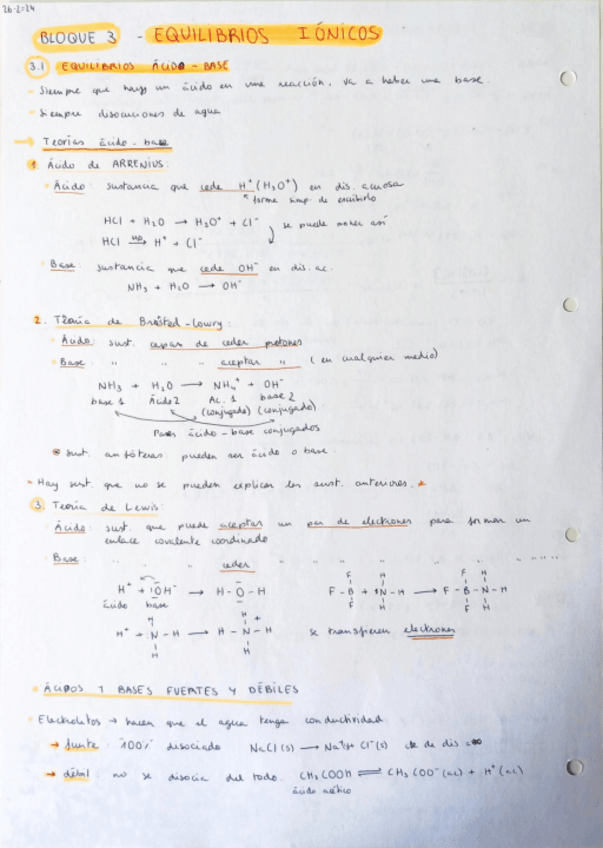 26-2-24
BLOQUE 3 - EQUILIBRIOS IÓNICOS
3.1 EQUILIBRIOS ÁCIDO-BASE
- Siempre que haya un ácido en una reacción, va a haber una base.
- Siempre disoluciones de agua
→ Teorías ácido-base
1. Ácido de ARRENIUS:
Ácido: sustancia que cede H⁺(H₃O⁺) en dis. acuosa
forma simp. de escribirlo
HCl + H₂O → H₃O⁺ + Cl⁻ se puede poner así
HCl —H₂O→ H⁺ + Cl⁻
Base: sustancia que cede OH⁻ en dis. ac.
NH₃ + H₂O → OH⁻
2. Teoría de Brösted-Lowry:
Ácido: sust. capaz de ceder protones
Base: " " " aceptar " (en cualquier medio)
NH₃ + H₂O → NH₄⁺ + OH⁻
base 1 Ácido 2 Ac. 1 base 2
(conjugado) (conjugado)
Pares ácido-base conjugados
* Sust. anfóteras: pueden ser ácido o base.
- Hay sust. que no se pueden explicar las sust. anteriores. *
3. Teoría de Lewis:
Ácido: sust. que puede aceptar un par de electrones para formar un
enlace covalente coordinado
Base: " " " ceder " " " " " " "
H⁺ + |OH⁻ → H - O - H
ácido base
F H F H
F - B + |N - H → F - B - N - H
F H F H
H H
H⁺ + |N - H → H - N⁺ - H se transfieren electrones
H H
ÁCIDOS Y BASES FUERTES Y DÉBILES
- Electrolitos → hacen que el agua tenga conductividad
→ fuerte: 100% disociado NaCl(s) → Na⁺ + Cl⁻(s) cte de dis = ∞
→ débil: no se disocia del todo. CH₃COOH ⇌ CH₃COO⁻(ac) + H⁺(ac)
ácido acético